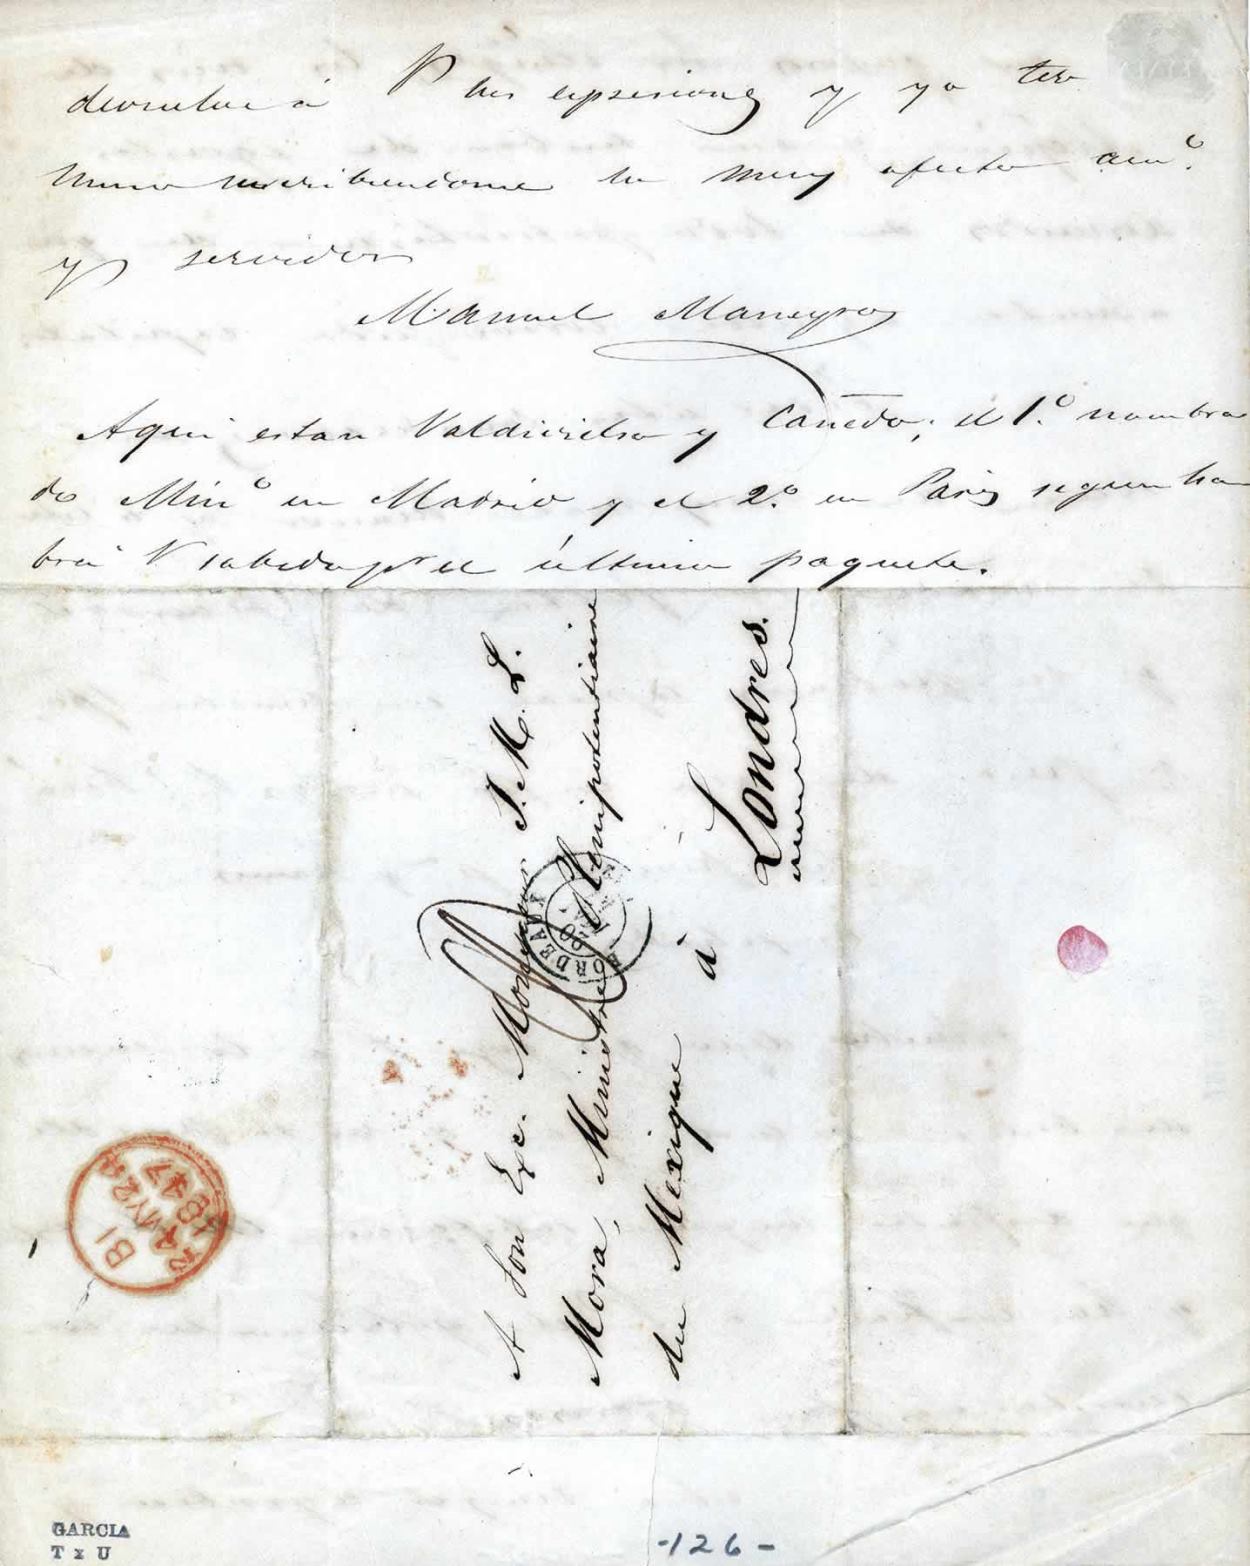 devuelve á V sus espresiones y yo ter
mino suscribiendome su muy afecto am.º
y servidor
Manuel Maneyro
Aqui estan Valdivielso y Canedo; el 1.º nombra
do Min.º en Madrid y el 2.º en Paris segun ha
brá V sabido p.r el último paquete.
A Son Exc. Monsieur J. M. L.
Mora, Ministre Plenipotentiaire
du Mexique à Londres.
BORDEAUX
20
BI
24 MY 24
1847
GARCIA
T x U
-126-